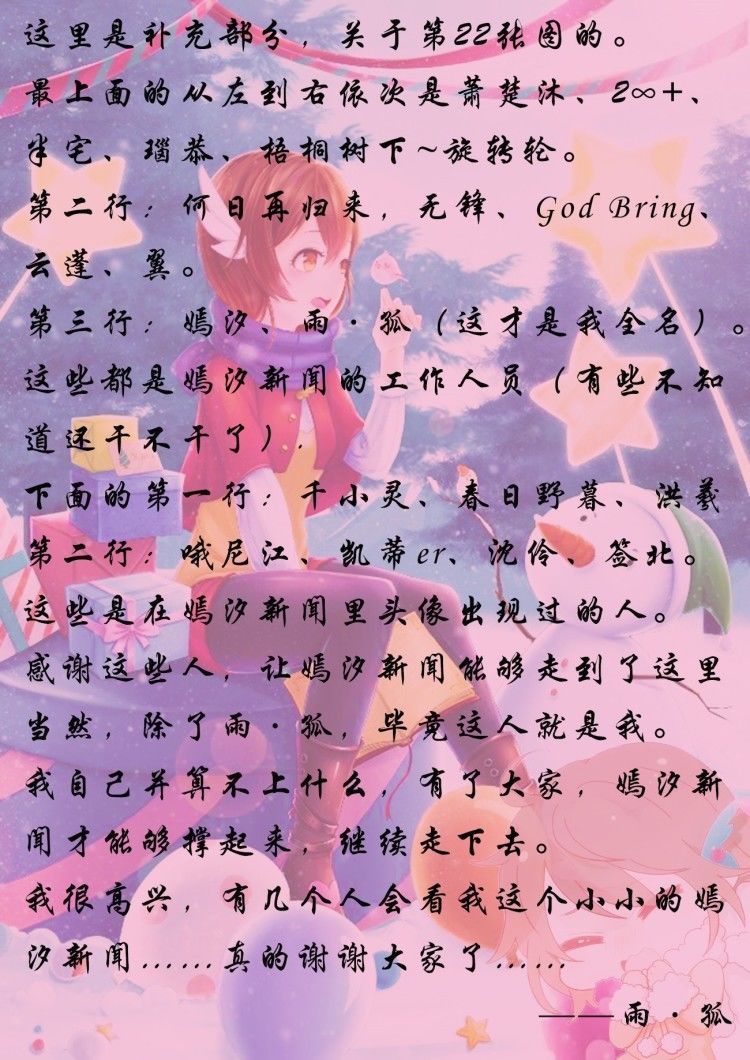 这里是补充部分，关于第22张图的。
最上面的从左到右依次是萧楚沐、2∞+、
半宅、瑙恭、梧桐树下~旋转轮。
第二行：何日再归来，无锋、God Bring、
云蓬、翼。
第三行：嫣汐、雨·孤（这才是我全名）。
这些都是嫣汐新闻的工作人员（有些不知
道还干不干了）.
下面的第一行：千小灵、春日野暮、洪羲
第二行：哦尼江、凯蒂er、沈伶、签北。
这些是在嫣汐新闻里头像出现过的人。
感谢这些人，让嫣汐新闻能够走到了这里
当然，除了雨·孤，毕竟这人就是我。
我自己并算不上什么，有了大家，嫣汐新
闻才能够撑起来，继续走下去。
我很高兴，有几个人会看我这个小小的嫣
汐新闻……真的谢谢大家了……
——雨·孤